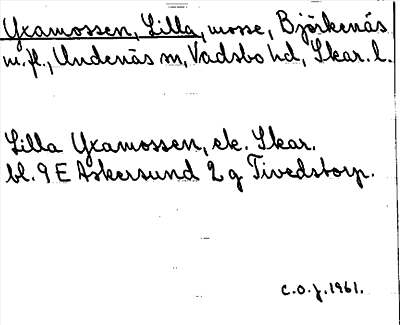 Yxamossen, Lilla, mosse, Björkenäs
m.fl., Undenäs sn, Vadsbo hd, Skar. l.
Lilla Yxamossen, ek. Skar.
bl. 9 E Askersund 2 g Tivedstorp.
C.O.J. 1961.